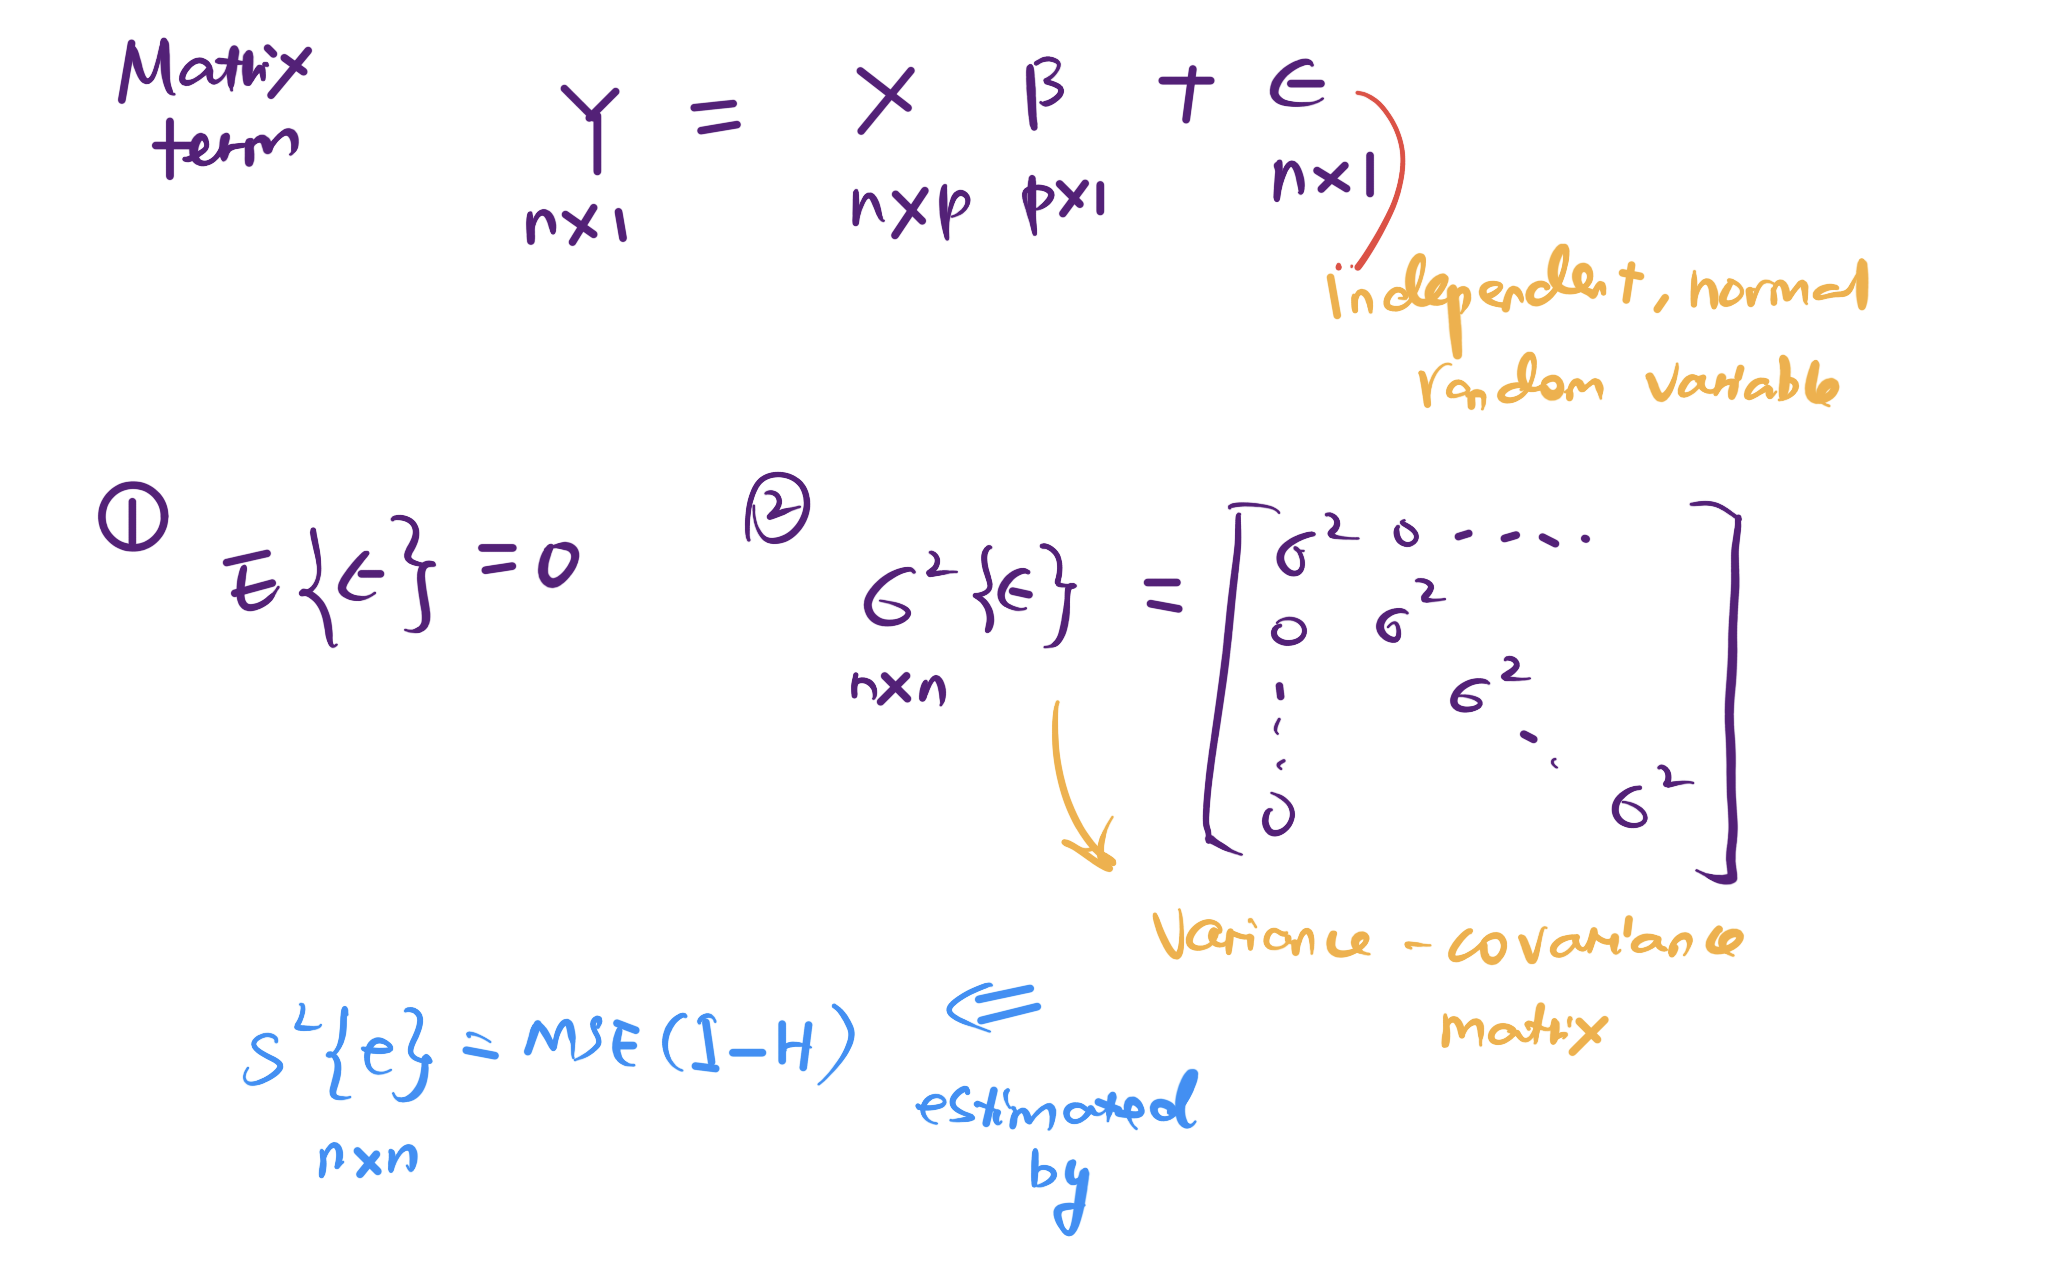 Matrix
term
Y = X β + ϵ
n×1 n×p p×1 n×1
independent, normal
random variable
① E{ϵ} = 0
② σ²{ϵ} =
n×n
σ² 0 ....
0 σ²
. σ²
. .
. .
0 σ²
Variance - covariance
matrix
s²{e} = MSE(I-H) ⇐
n×n
estimated
by